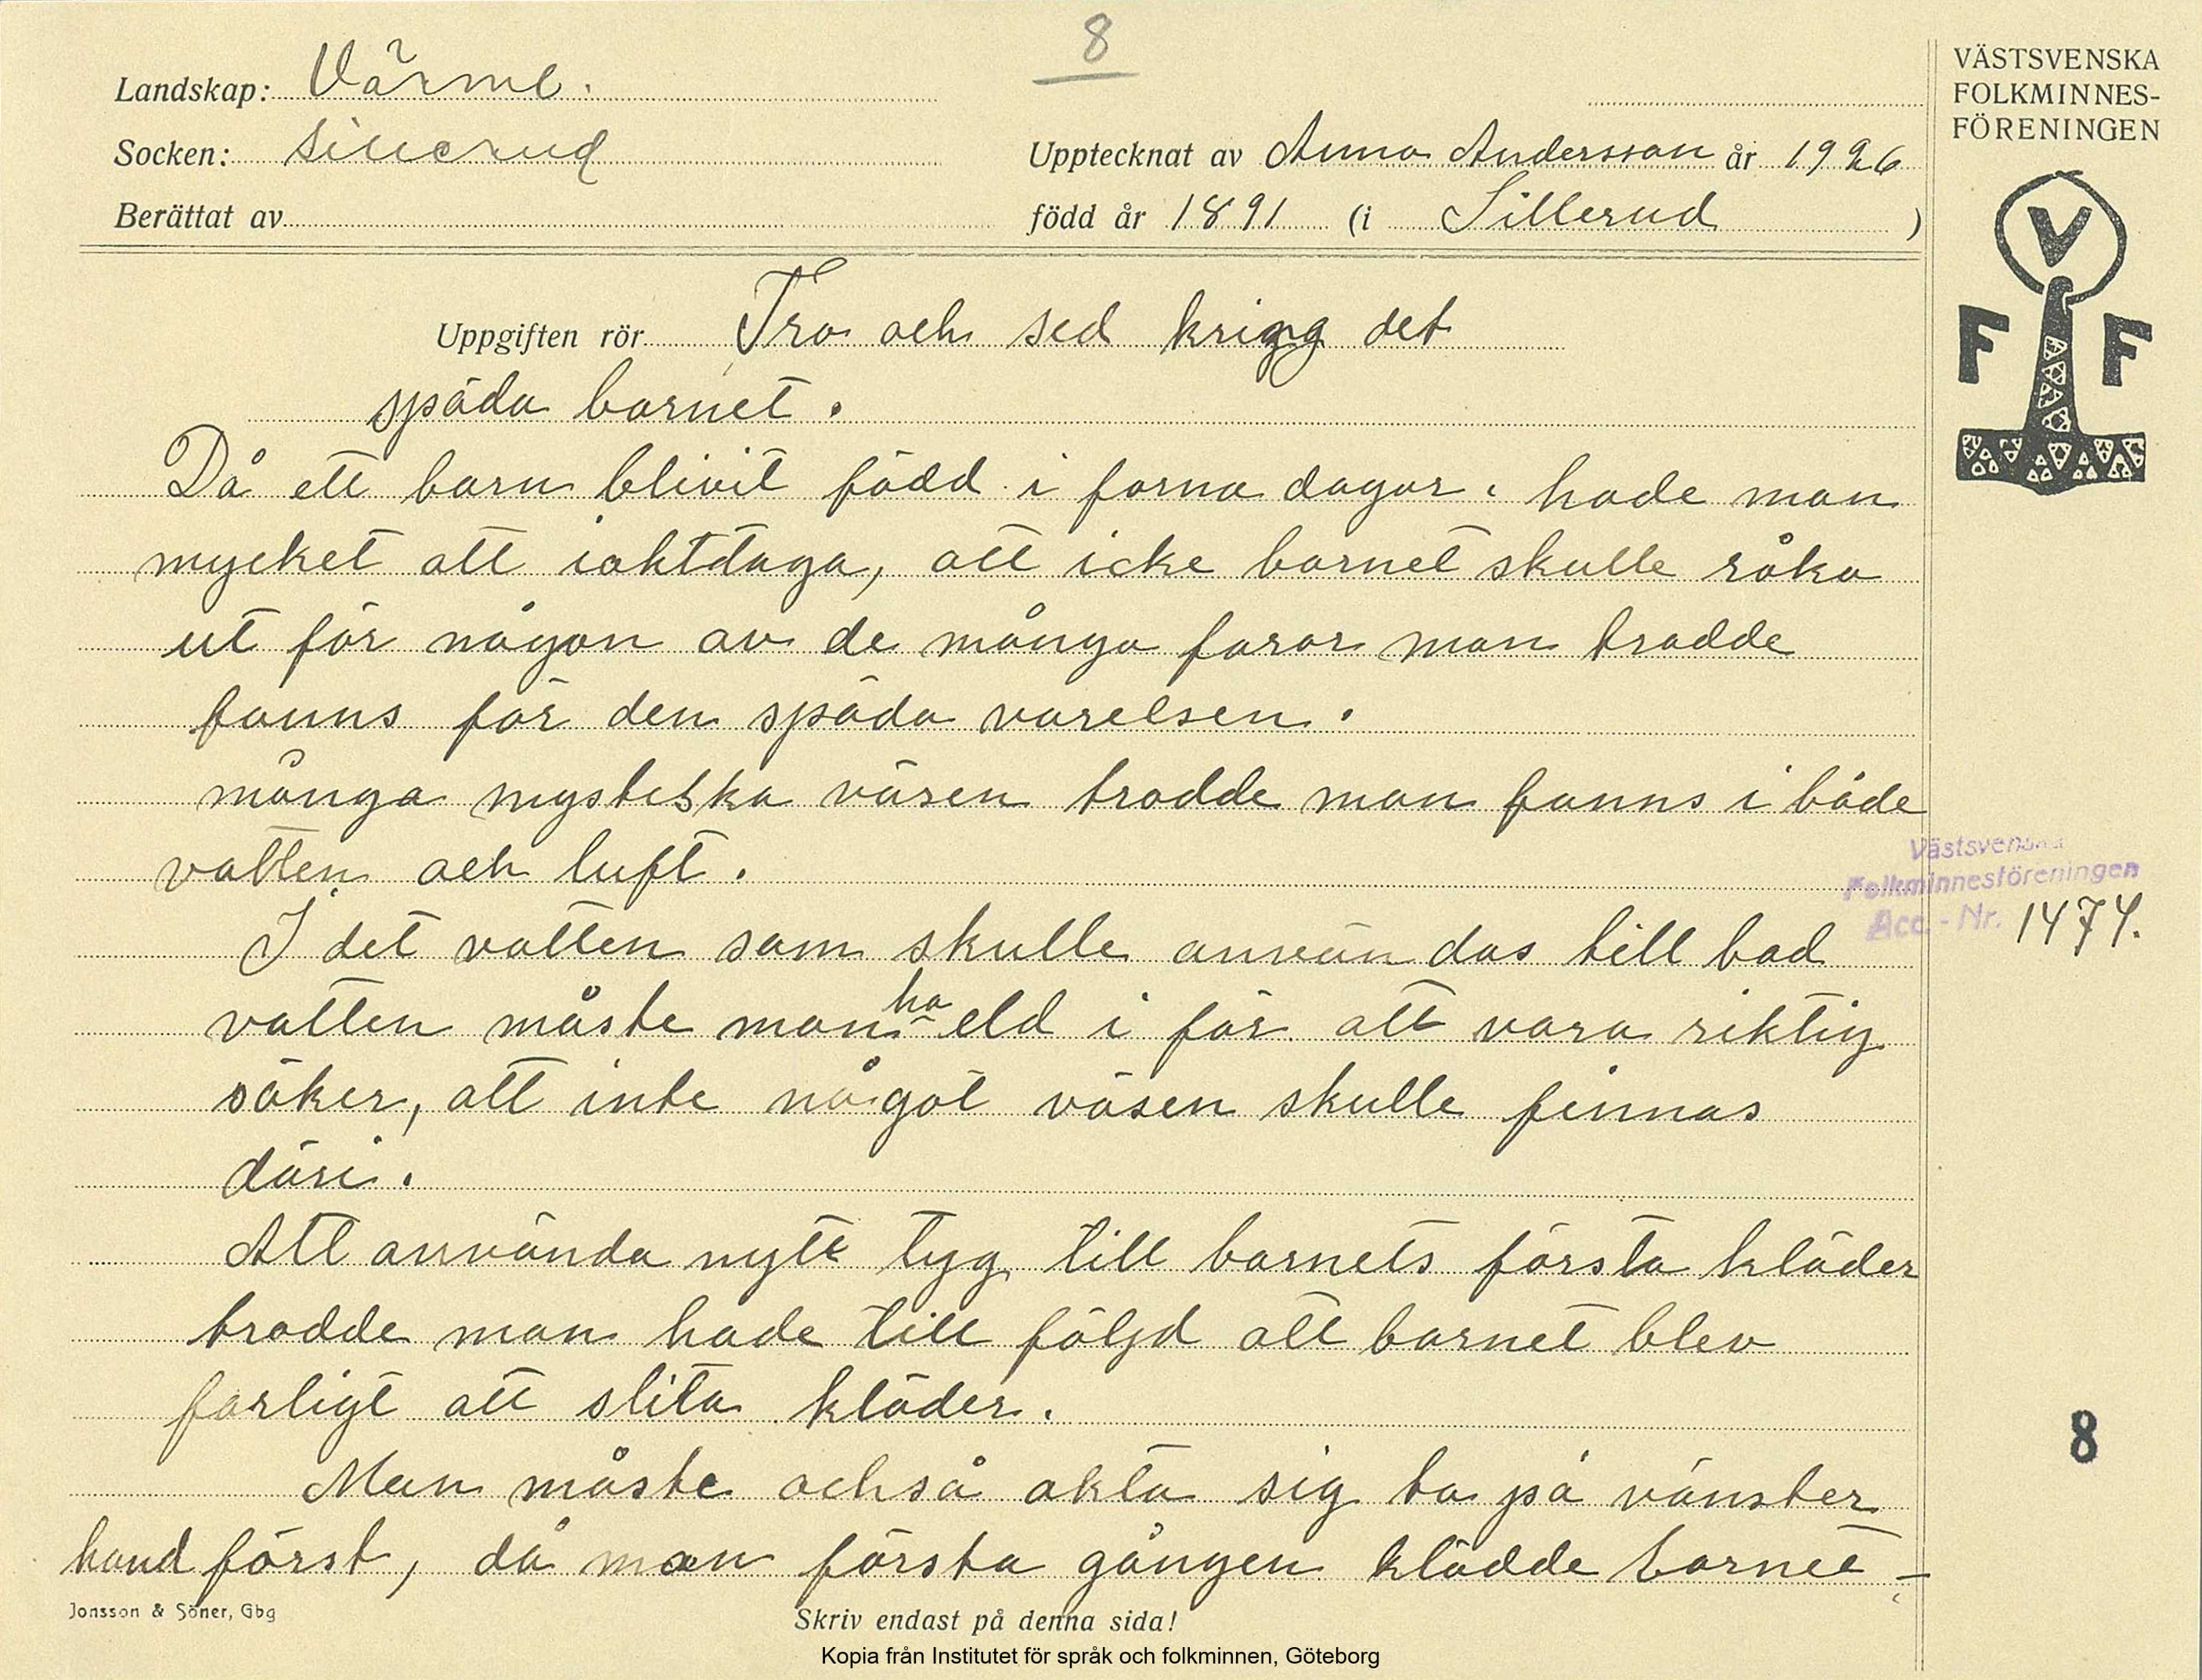 8
Landskap: Värml.
Socken: Sillerud
Berättat av
Upptecknat av Anna Andersson år 1926
född år 1891 (i Sillerud )
VÄSTSVENSKA
FOLKMINNES-
FÖRENINGEN
V
F F
Uppgiften rör Tro och sed kring det
späda barnet.
Då ett barn blivit född i forna dagar, hade man
mycket att iakttaga, att icke barnet skulle råka
ut för någon av de många faror man trodde
fanns för den späda varelsen.
många mystiska väsen trodde man fanns i både
vatten och luft.
I det vatten som skulle användas till bad
vatten måste man ha eld i för att vara riktig
säker, att inte något väsen skulle finnas
däri.
Att använda nytt tyg till barnets första kläder
trodde man hade till följd att barnet blev
farligt att slita kläder.
Man måste också akta sig ta på vänster
hand först, då man första gången klädde barnet -
Västsvenska
Folkminnesföreningen
Acc. - Nr. 1474.
8
Jonsson & Söner, Gbg
Skriv endast på denna sida!
Kopia från Institutet för språk och folkminnen, Göteborg